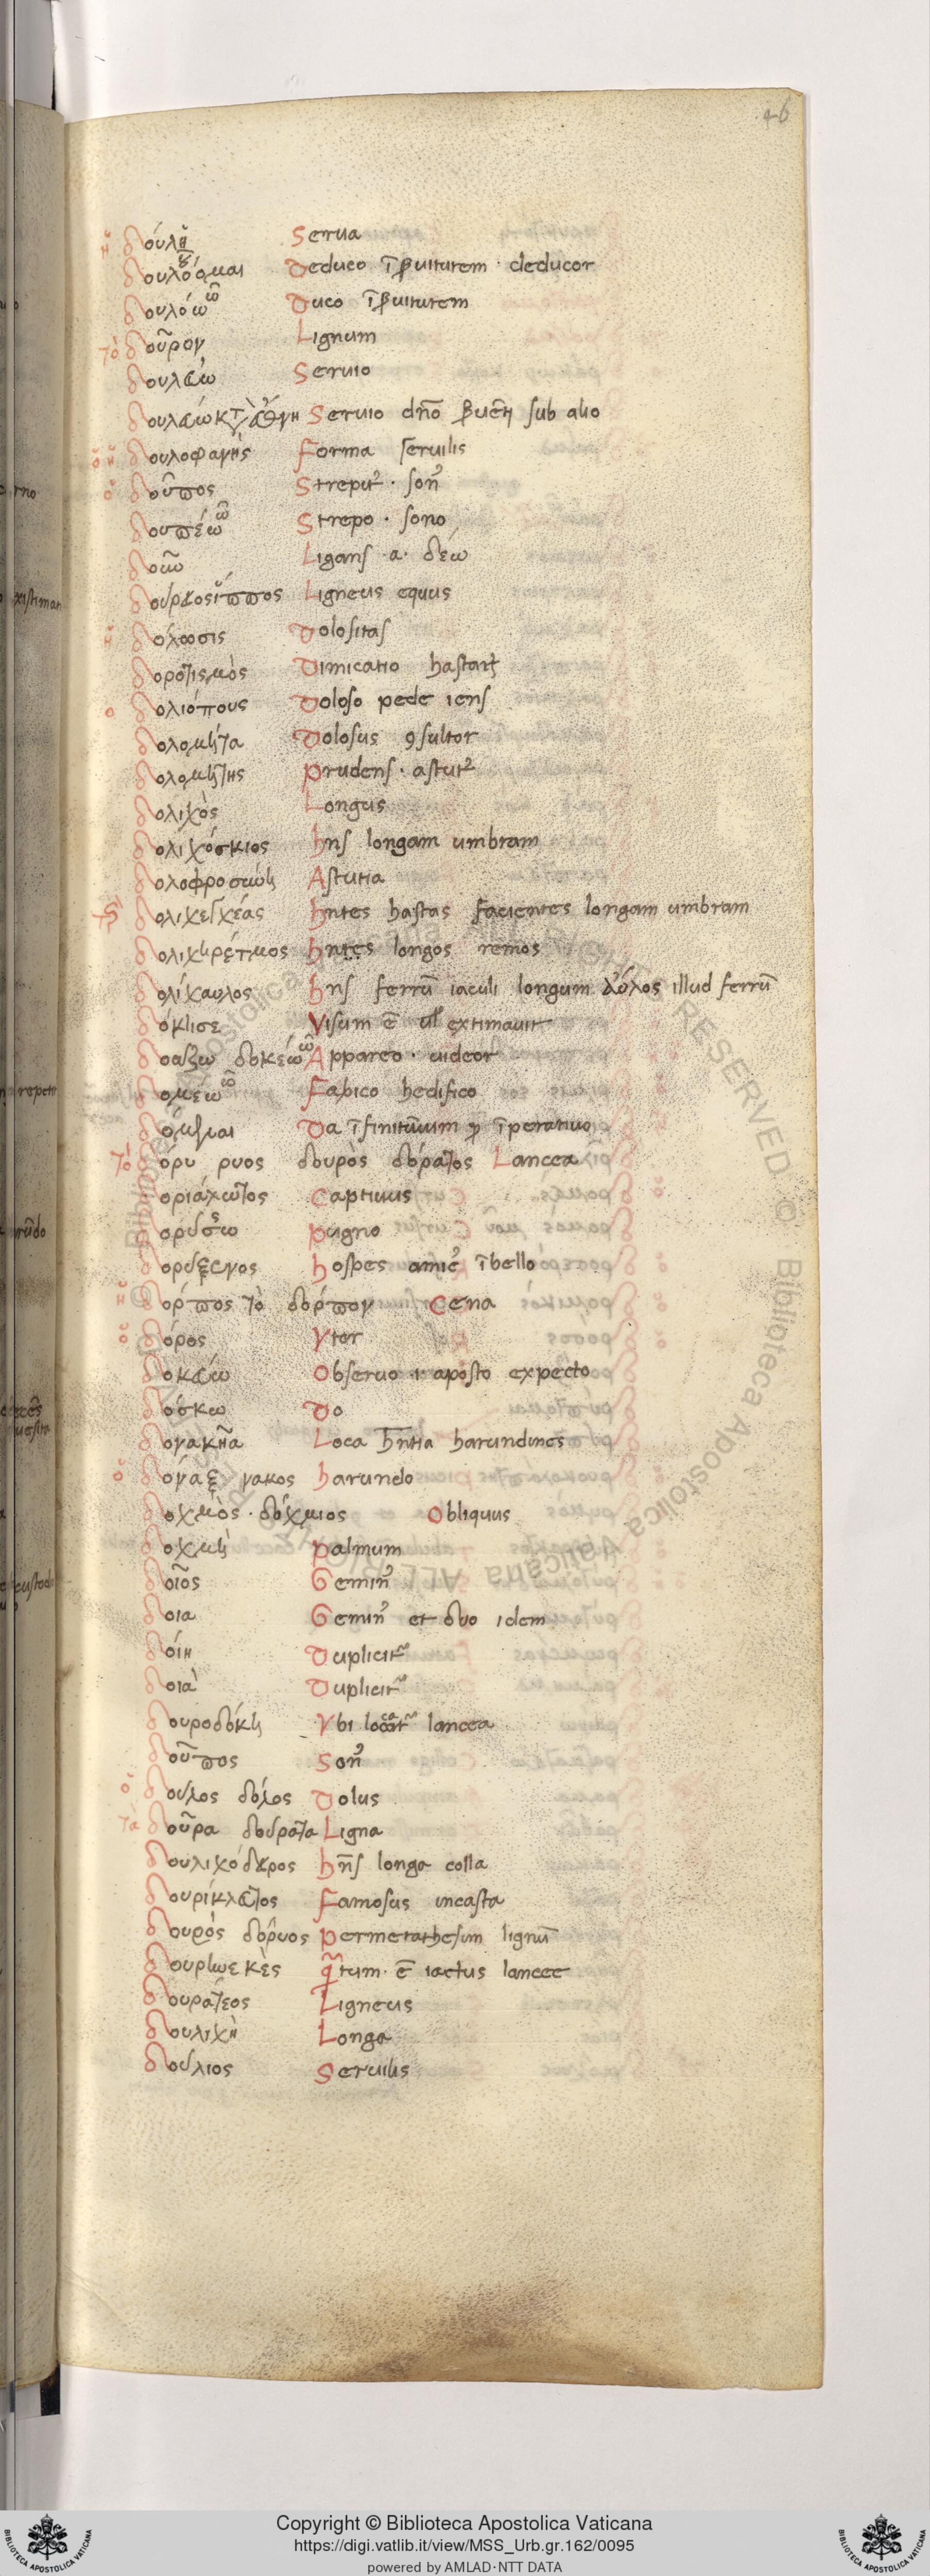 46
ἡ δούλη Serua
δουλόομαι Deduco ĩ ꝑuitutem · deducor
δουλόω ῶ Duco ĩ ꝑuitutem
τὸ δοῦρον Lignum
δουλεύω Seruio
Seruio dño sub alio
ὁ ἡ δουλοφανὴς Forma seruilis
ὁ δοῦπος Strepit⁹ · son⁹
δουπέω ῶ Strepo · sono
Ligans · a · δέω
δούρειος ἵππος Ligneus equus
ἡ δόλωσις Dolositas
δορατισμὸς Dimicatio hastaꝝ
ὁ δολιόπους Doloso pede iens
δολομήτα Dolosus ꝯsultor
δολομήτης Prudens · astut⁹
δολιχὸς Longus
δολιχόσκιος hns longam umbram
δολοφροσύνη Astutia
δολιχεγχέας hntes hastas facientes longam umbram
δολιχηρέτμος hntes longos remos
δολίχαυλος hns ferrũ iaculi longum αὐλος illud ferrũ
δόκισε Visum ẽ ul extimauit
δοάζω δοκέω ῶ Appareo · uideor
δομέω ῶ Fabico hedifico
δόμεναι Da ĩfinitiuum ꝓ ĩperatiuo
τὸ δόρυ ρυος δουρὸς δόρατος Lancea
δοριάλωτος Captiuus
δορύσσω pugno
δορύξενος hospes amic⁹ ĩbello
ἡ δόρπος τὸ δόρπον Cena
ὁ δόρος Vter
δοκεύω Obseruo aposto expecto
δόσκω Do
δονακῆα Loca hñtia harundines
ὁ δόναξ νακος harundo
δοχμὸς · δόχμιος Obliquus
δοχμὴ palmum
δοῖος Gemin⁹
δοια Gemin⁹ et δυο idem
δόιη Duplicitʳ
δοιὰ Duplicitʳ
δουροδόκη Vbi locatʳ lancea
δοῦπος Son⁹
ὁ δούλος δόλος Dolus
τὰ δοῦρα δούρατα Ligna
δουλιχόδειρος hñs longa colla
δουρίκλειτος Famosus inhasta
δουρός δόρυος permetathesim lignũ
δουρηνεκὲς q̃tum · ẽ iactus lancee
δουράτεος Ligneus
δουλιχὴ Longa
δούλιος Seruilis
Copyright © Biblioteca Apostolica Vaticana
https://digi.vatlib.it/view/MSS_Urb.gr.162/0095
powered by AMLAD·NTT DATA